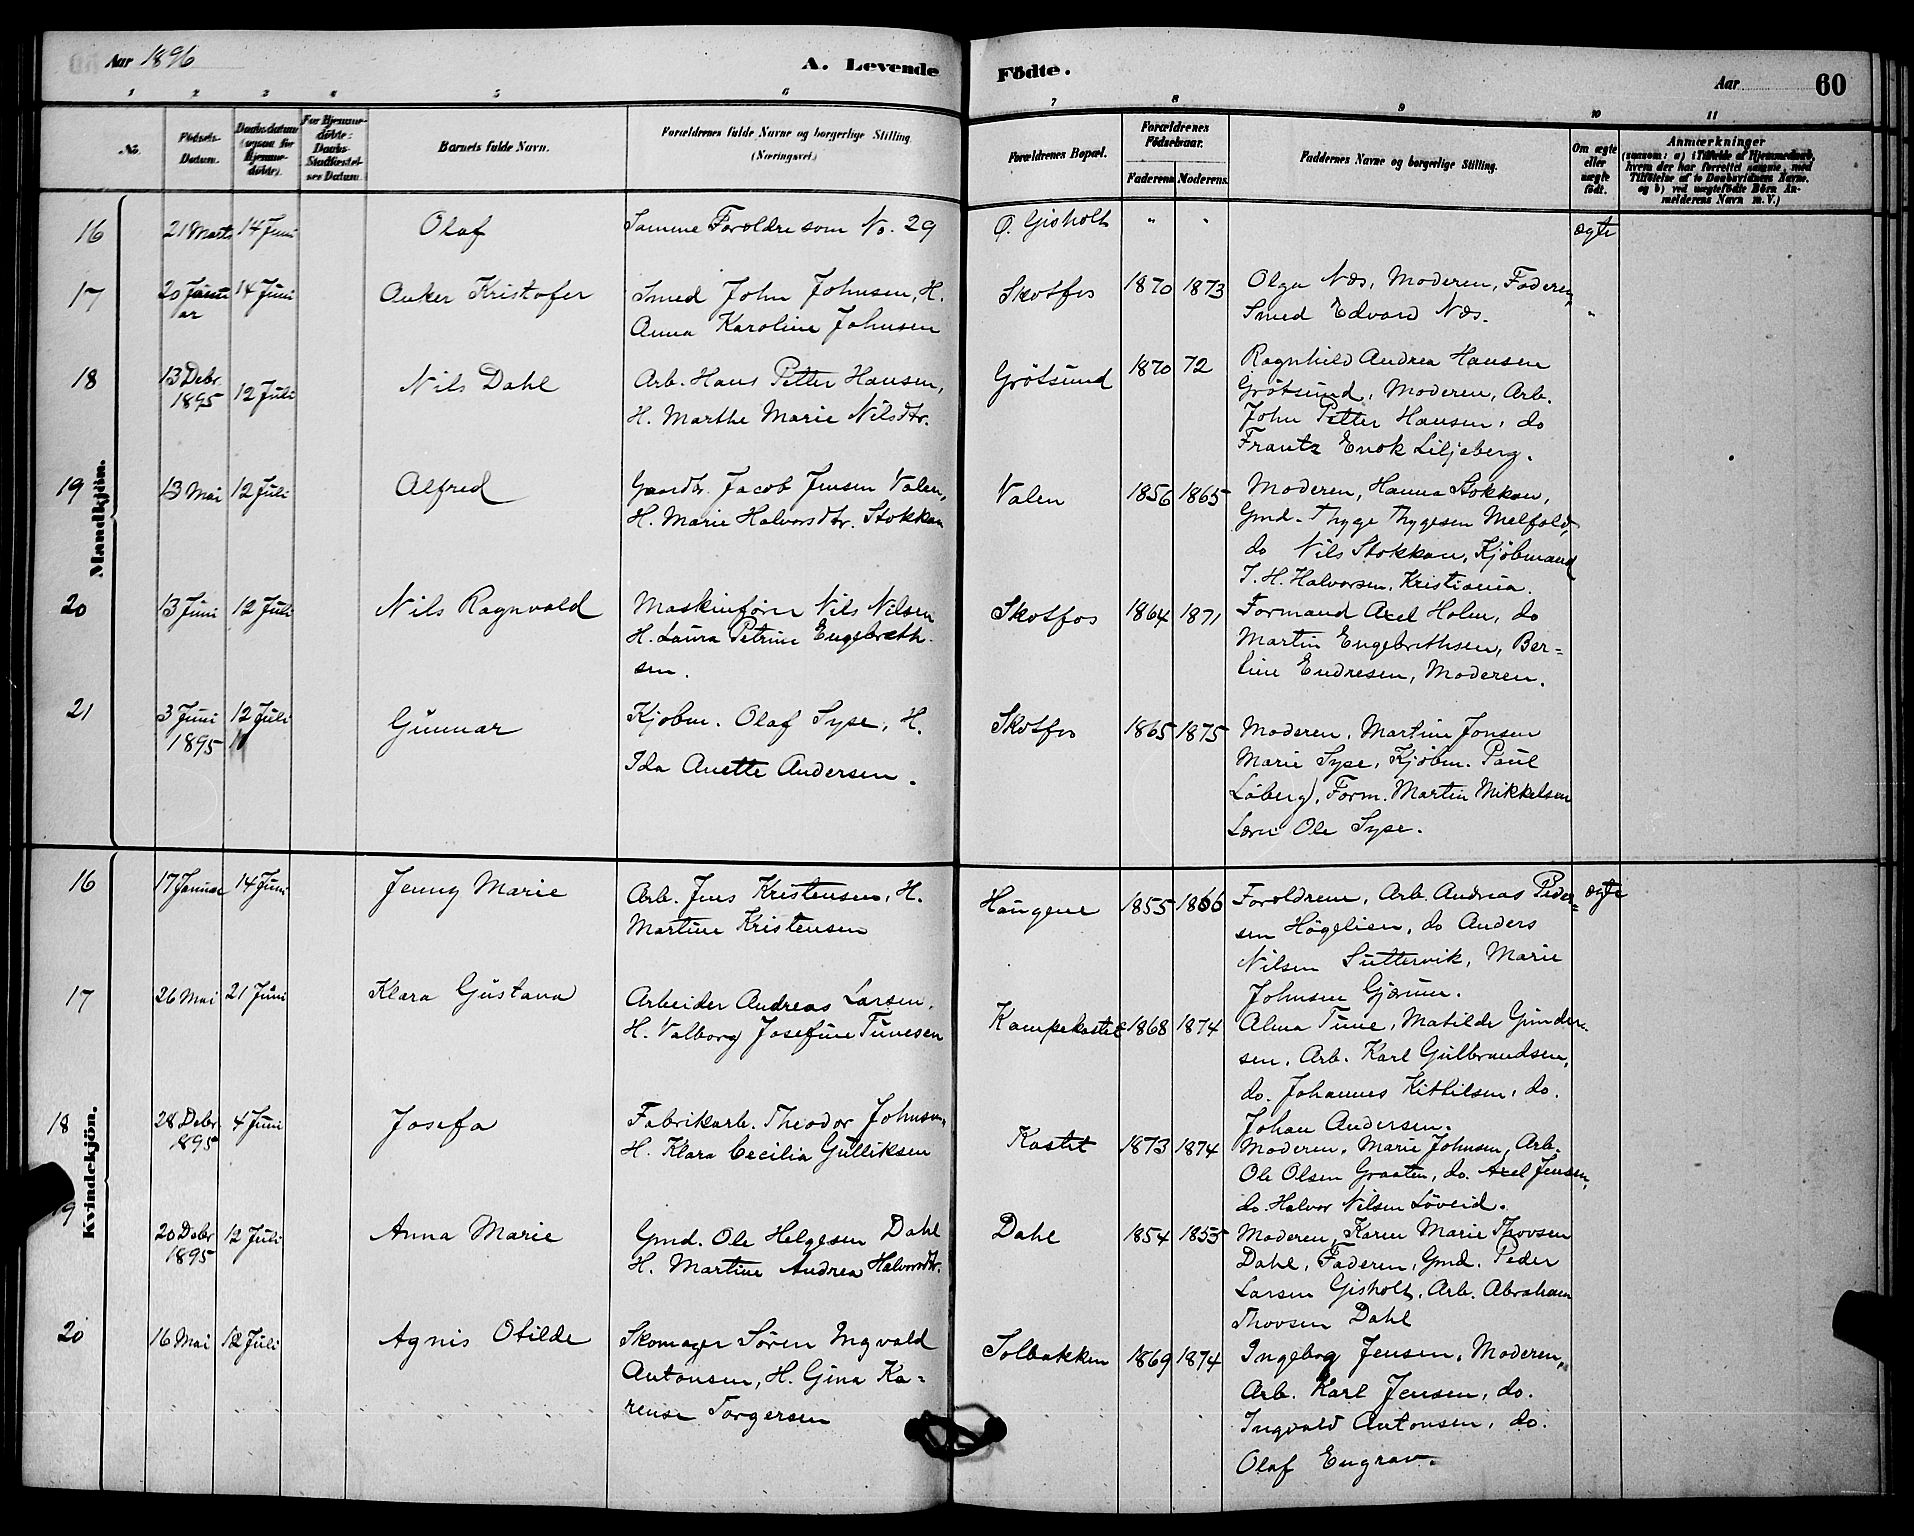 Aar 1896
A. Levende
Födte.
Aar
60
1 2 3 4 5 6 7 8 9 10 11
No.
Födsels-
Datum.
Daabsdatum
(ogsaa for
Hjemme-
döbte).
For Hjemme-
döbte:
Daabs-
Stadfæstel-
ses Datum.
Barnets fulde Navn.
Forældrenes fulde Navne og borgerlige Stilling
(Næringsvei.)
Forældrenes Bopæl.
Forældrenes
Födselsaar.
Faderens
Moderens.
Faddernes Navne og borgerlige Stilling.
Om ægte
eller
uægte
födt.
Anmærkninger
(saasom: a) i Tilfælde af Hjemmedaab,
hvem der har forrettet samme, med
Tilföielse af to Daabsvidners Navne.
og b) ved uægtefödte Börn An-
melderens Navn m. V.)
Mandkjön.
16 21 Marts 14 Juni Olaf Samme Foroldre som No. 29 Ö. Gisholt " " ægte
17 20 Janu 14 Juni Anker Kristofer Smed John Johnsen, H. Skotfos 1870 1873 Olga Næs, Moderen, Faderen,
ar Anna Karoline Johnsen Smed Edvard Næs. "
18 13 Debr. 12 Juli Nils Dahl Arb. Hans Petter Hansen, Grötsund 1870 72 Ragnhild Andrea Hansen
1895 H. Marthe Marie Nilsdtr. Grötsund, Moderen, Arb.
John Petter Hansen, do
Frantz Enok Liljeberg.
19 13 Mai 12 Juli Alfred Gaardbr. Jacob Jensen Valen, Valen 1856 1865 Moderen, Hanna Stokkan,
H. Marie Halvorsdtr. Stokkan Gmd. Thyge Thygesen Melfald,
do Nils Stokkan, Kjöbmand
T. H. Halvorsen, Kristiania.
20 13 Juni 12 Juli Nils Ragnvald Maskinförer Nils Nilsen Skotfos 1864 1871 Formand Axel Holm, do
H. Laura Petrine Engebreth- Martin Engebrethsen, Ber-
sen. line Endresen, Moderen.
21 3 Juni 12 Juli Gunnar Kjöbm. Olaf Syse, H. Skotfos 1865 1875 Moderen, Martine Jonsen
1895 Ida Anette Andersen. Marie Syse, Kjöbm. Paul
Löberg, Form. Martin Mikkelsen
Lærer Ole Syse.
Kvindekjön.
16 17 Januar 14 Juni Jenny Marie Arb. Jens Kristensen, H. Haugene 1855 1866 Foroldrene, Arb. Andreas Peder= ægte
Martine Kristensen sen Högelien, do Anders
Nilsen Suttervik, Marie
Johnsen Gjærum.
17 26 Mai 21 Juni Klara Gustava Arbeider Andreas Larsen, Kampekastet 1868 1874 Alma Tune, Matilde Gunder-
H. Valborg Josefine Tunesen sen, Arb. Karl Gulbrandsen,
do. Johannes Kittilsen, do.
Johan Andersen.
18 28 Debr. 4 Juni Josefa Fabrikarb. Theodor Johnsen, Kastet 1873 1874 Moderen, Marie Johnsen, Arb.
1895 H. Klara Cecilia Gulliksen Ole Olsen Graaten, do. Axel Jensen,
do. Halvor Nilsen Löveid.
9 20 Debr 12 Juli Anna Marie Gmd. Ole Helgesen Dahl Dahl 1854 1855 Moderen, Karen Marie Thovsen
1895 H. Martine Andrea Halvorsdtr. Dahl, Faderen, Gmd. Peder
Larsen Gisholt, Arb. Abraham
Thovsen Dahl
20 16 Mai 12 Juli Agnis Otilde Skomager Sören Ingvald Solbakken 1869 1874 Ingeborg Jensen, Moderen,
Antonsen, H. Gina Ka- Arb. Karl Jensen, do.
rense Torgersen Ingvald Antonsen, do.
Olaf Engrav.